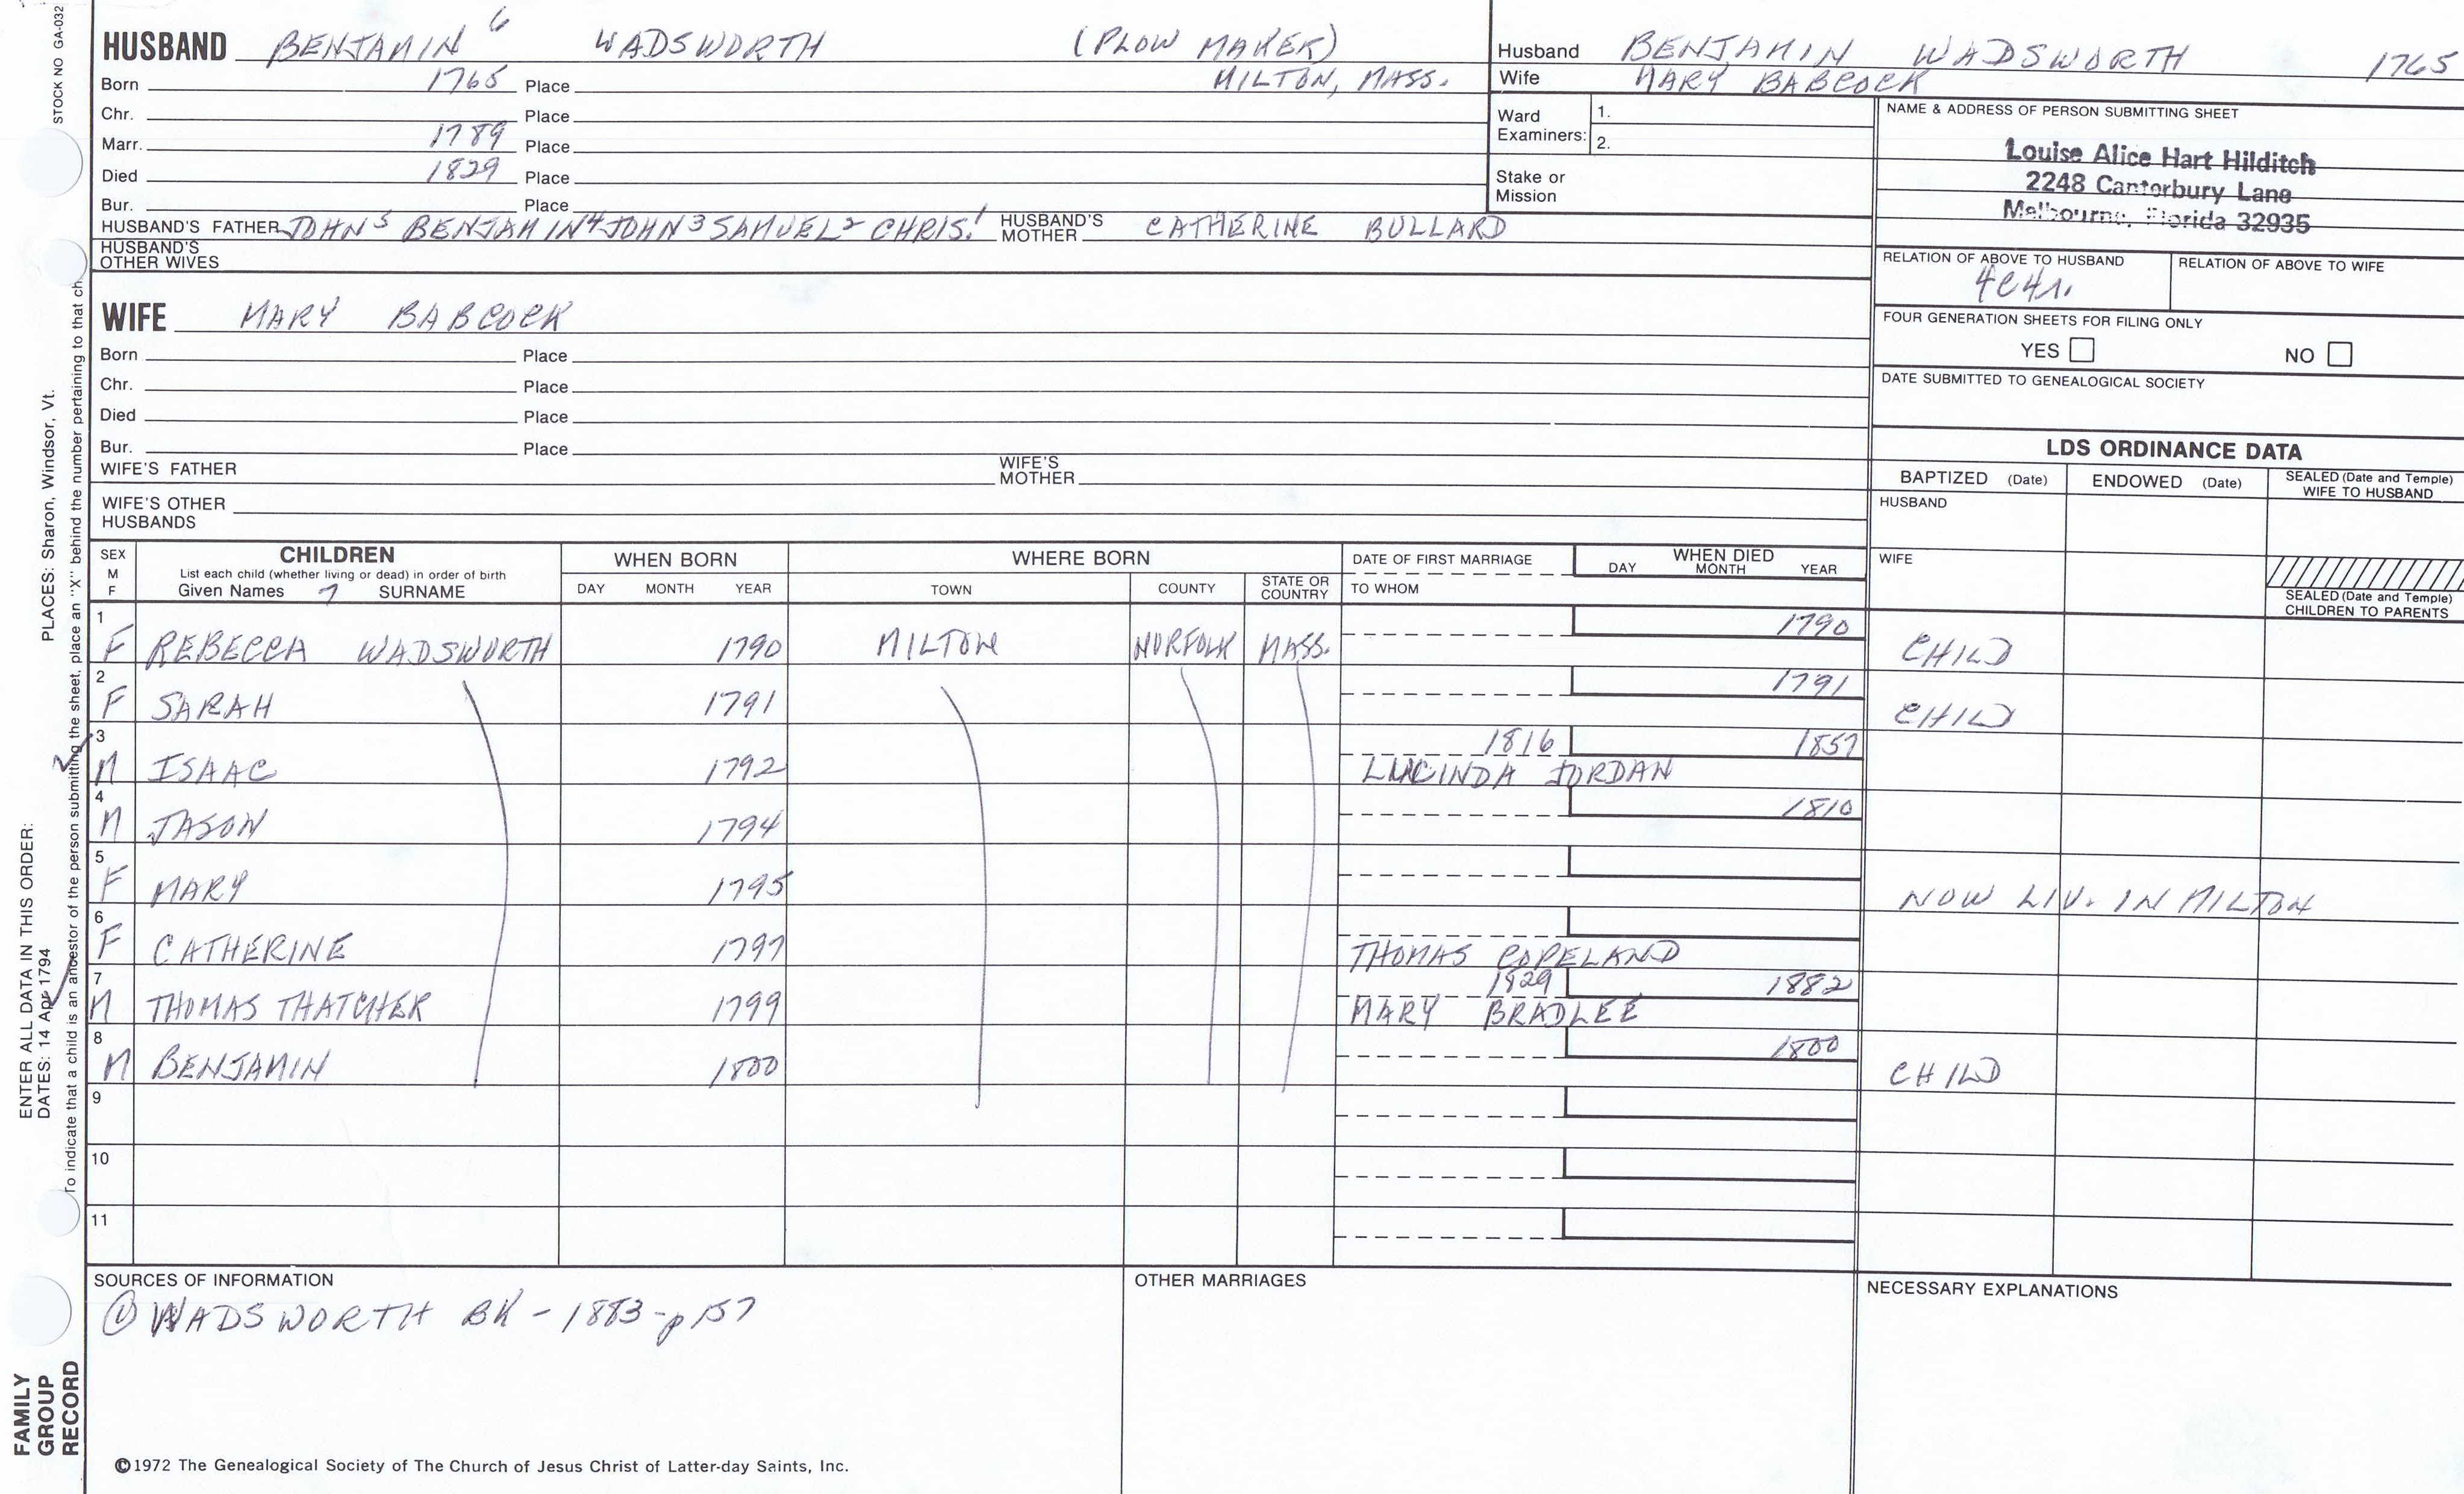 STOCK NO GA-032
HUSBAND BENJAMIN 6 WADSWORTH (PLOW MAKER)
Born 1765 Place MILTON, MASS.
Chr. Place
Marr. 1789 Place
Died 1829 Place
Bur. Place
HUSBAND'S FATHER JOHN 5 BENJAMIN 4 JOHN 3 SAMUEL 2 CHRIS. 1 HUSBAND'S MOTHER CATHERINE BULLARD
HUSBAND'S OTHER WIVES
WIFE MARY BABCOCK
Born Place
Chr. Place
Died Place
Bur. Place
WIFE'S FATHER WIFE'S MOTHER
WIFE'S OTHER HUSBANDS
Husband BENJAMIN WADSWORTH 1765
Wife MARY BABCOCK
Ward Examiners: 1.
2.
Stake or Mission
NAME & ADDRESS OF PERSON SUBMITTING SHEET
Louise Alice Hart Hilditch
2248 Canterbury Lane
Melbourne, Florida 32935
RELATION OF ABOVE TO HUSBAND RELATION OF ABOVE TO WIFE
4C4r.
FOUR GENERATION SHEETS FOR FILING ONLY
YES NO
DATE SUBMITTED TO GENEALOGICAL SOCIETY
LDS ORDINANCE DATA
BAPTIZED (Date) ENDOWED (Date) SEALED (Date and Temple) WIFE TO HUSBAND
HUSBAND
WIFE
SEALED (Date and Temple) CHILDREN TO PARENTS
SEX M F CHILDREN WHEN BORN WHERE BORN DATE OF FIRST MARRIAGE WHEN DIED
List each child (whether living or dead) in order of birth
Given Names 7 SURNAME DAY MONTH YEAR TOWN COUNTY STATE OR COUNTRY TO WHOM DAY MONTH YEAR
1 F REBECCA WADSWORTH 1790 MILTON NORFOLK MASS. 1790 CHILD
2 F SARAH 1791 1791 CHILD
3 M ISAAC 1792 1816 1857
LUCINDA JORDAN
4 M JASON 1794 1810
5 F MARY 1795 NOW LIV. IN MILTON
6 F CATHERINE 1797 THOMAS COPELAND
7 M THOMAS THATCHER 1799 1829 1882
MARY BRADLEE
8 M BENJAMIN 1800 1800 CHILD
9
10
11
SOURCES OF INFORMATION OTHER MARRIAGES NECESSARY EXPLANATIONS
① WADSWORTH BK - 1883 - p 157
©1972 The Genealogical Society of The Church of Jesus Christ of Latter-day Saints, Inc.
ENTER ALL DATA IN THIS ORDER: PLACES: Sharon, Windsor, Vt.
DATES: 14 Apr 1794
To indicate that a child is an ancestor of the person submitting the sheet, place an "X" behind the number pertaining to that ch
FAMILY
GROUP
RECORD